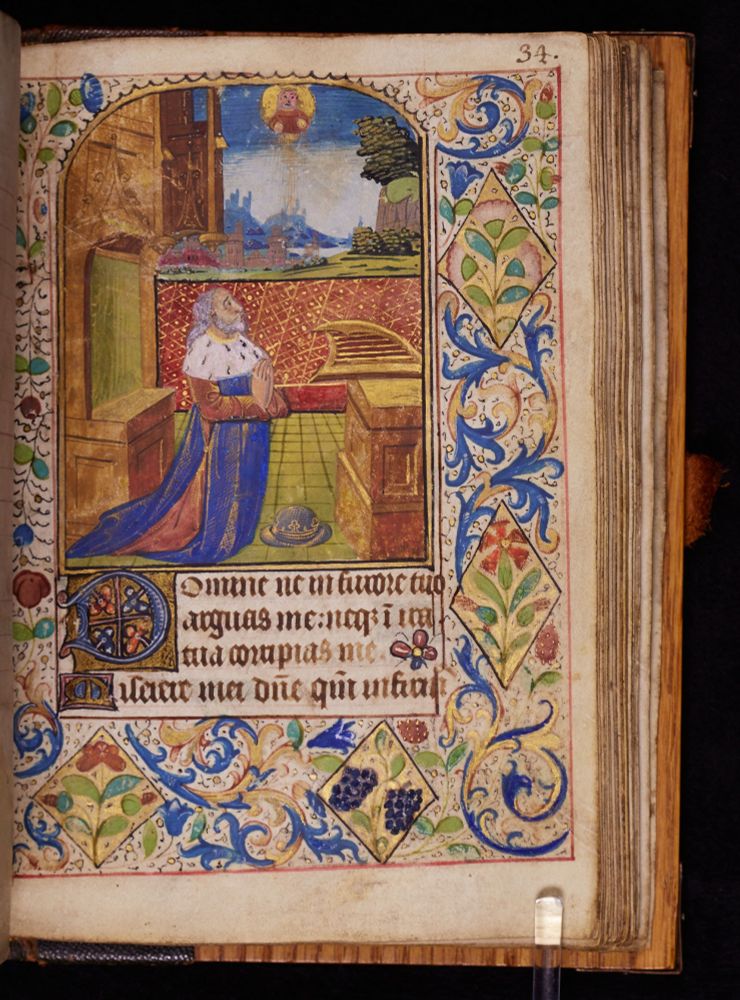 34.
Domine ne in furore tuo
arguas me: neqȝ ī ira
tua corripias me
Miserere mei dn̄e qm̄ infirmꝰ